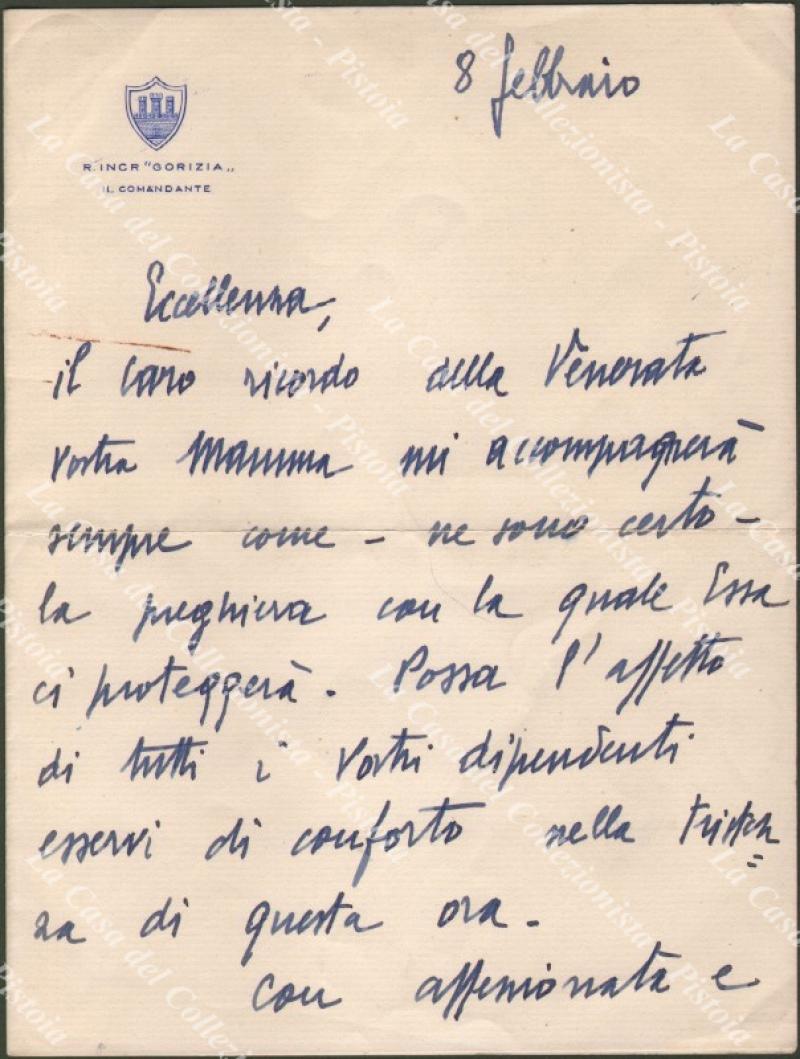 8 febbraio
R. INCR "GORIZIA„
IL COMANDANTE
Eccellenza,
il caro ricordo della Venerata
Vostra Mamma mi accompagnerà
sempre come - ne sono certo -
la preghiera con la quale Essa
ci proteggerà. Possa l'affetto
di tutti i Vostri dipendenti
esservi di conforto nella tristez=
za di questa ora -
Con affezionata e
La Casa del Collezionista - Pistoia